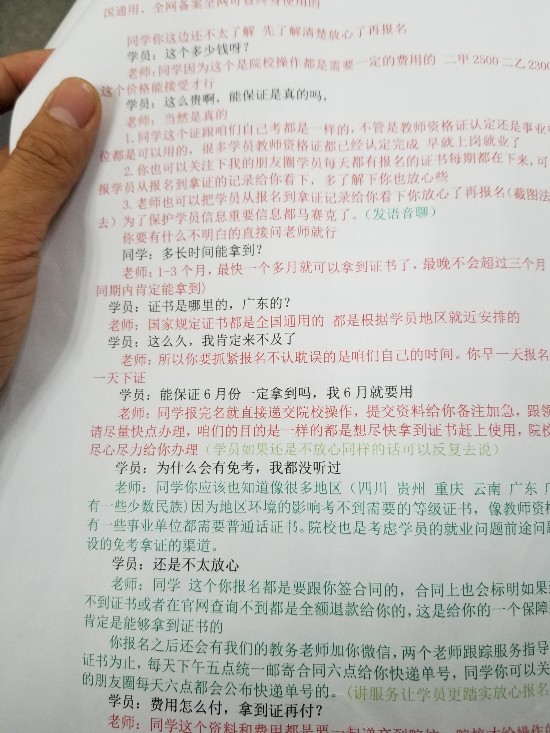 国通用、全网备案全网可查终身使用的
同学你这边还不太了解 先了解清楚放心了再报名
学员：这个多少钱呀？
老师：同学因为这个是院校操作都是需要一定的费用的 二甲 2500 二乙 2300
这个价格能接受才行
学员：这么贵啊，能保证是真的吗，
老师：当然是真的
1.同学这个证跟咱们自己考都是一样的，不管是教师资格证认定还是事业
位都是可以用的，很多学员教师资格证都已经认定完成 早就上岗就业了
2.你也可以关注下我的朋友圈学员每天都有报名的证书每期都在下来，可
报学员从报名到拿证的记录给你看下，多了解下你也放心些
3.老师也可以把学员从报名到拿证记录给你看下你放心了再报名(截图法
去）为了保护学员信息重要信息都马赛克了。（发语音聊）
你要有什么不明白的直接问老师就行
同学：多长时间能拿到？
老师：1-3 个月，最快一个多月就可以拿到证书了，最晚不会超过三个月
同期内肯定能拿到)
学员：证书是哪里的，广东的？
老师：国家规定证书都是全国通用的 都是根据学员地区就近安排的
学员：这么久，我肯定来不及了
老师：所以你要抓紧报名不认耽误的是咱们自己的时间。你早一天报名
一天下证
学员：能保证 6 月份 一定拿到吗，我 6 月就要用
老师：同学报完名就直接递交院校操作，提交资料给你备注加急，跟领
请尽量快点办理，咱们的目的是一样的都是想尽快拿到证书赶上使用，院校
尽心尽力给你办理（学员如果还是不放心同样的话可以反复去说）
学员：为什么会有免考，我都没听过
老师：同学你应该也知道像很多地区（四川 贵州 重庆 云南 广东
有一些少数民族)因为地区环境的影响考不到需要的等级证书，像教师资格
有一些事业单位都需要普通话证书。院校也是考虑学员的就业问题前途问题
设的免考拿证的渠道。
学员：还是不太放心
老师：同学 这个你报名都是要跟你签合同的，合同上也会标明如果
不到证书或者在官网查询不到都是全额退款给你的，这是给你的一个保障
肯定是能够拿到证书的
你报名之后还会有我们的教务老师加你微信，两个老师跟踪服务指导
证书为止，每天下午五点统一邮寄合同六点给你快递单号，同学你可以关
的朋友圈每天六点都会公布快递单号的。（讲服务让学员更踏实放心报名
学员：费用怎么付，拿到证再付？
老师：同学这个资料和费用都是要一起递交到院校，院校才给操作的